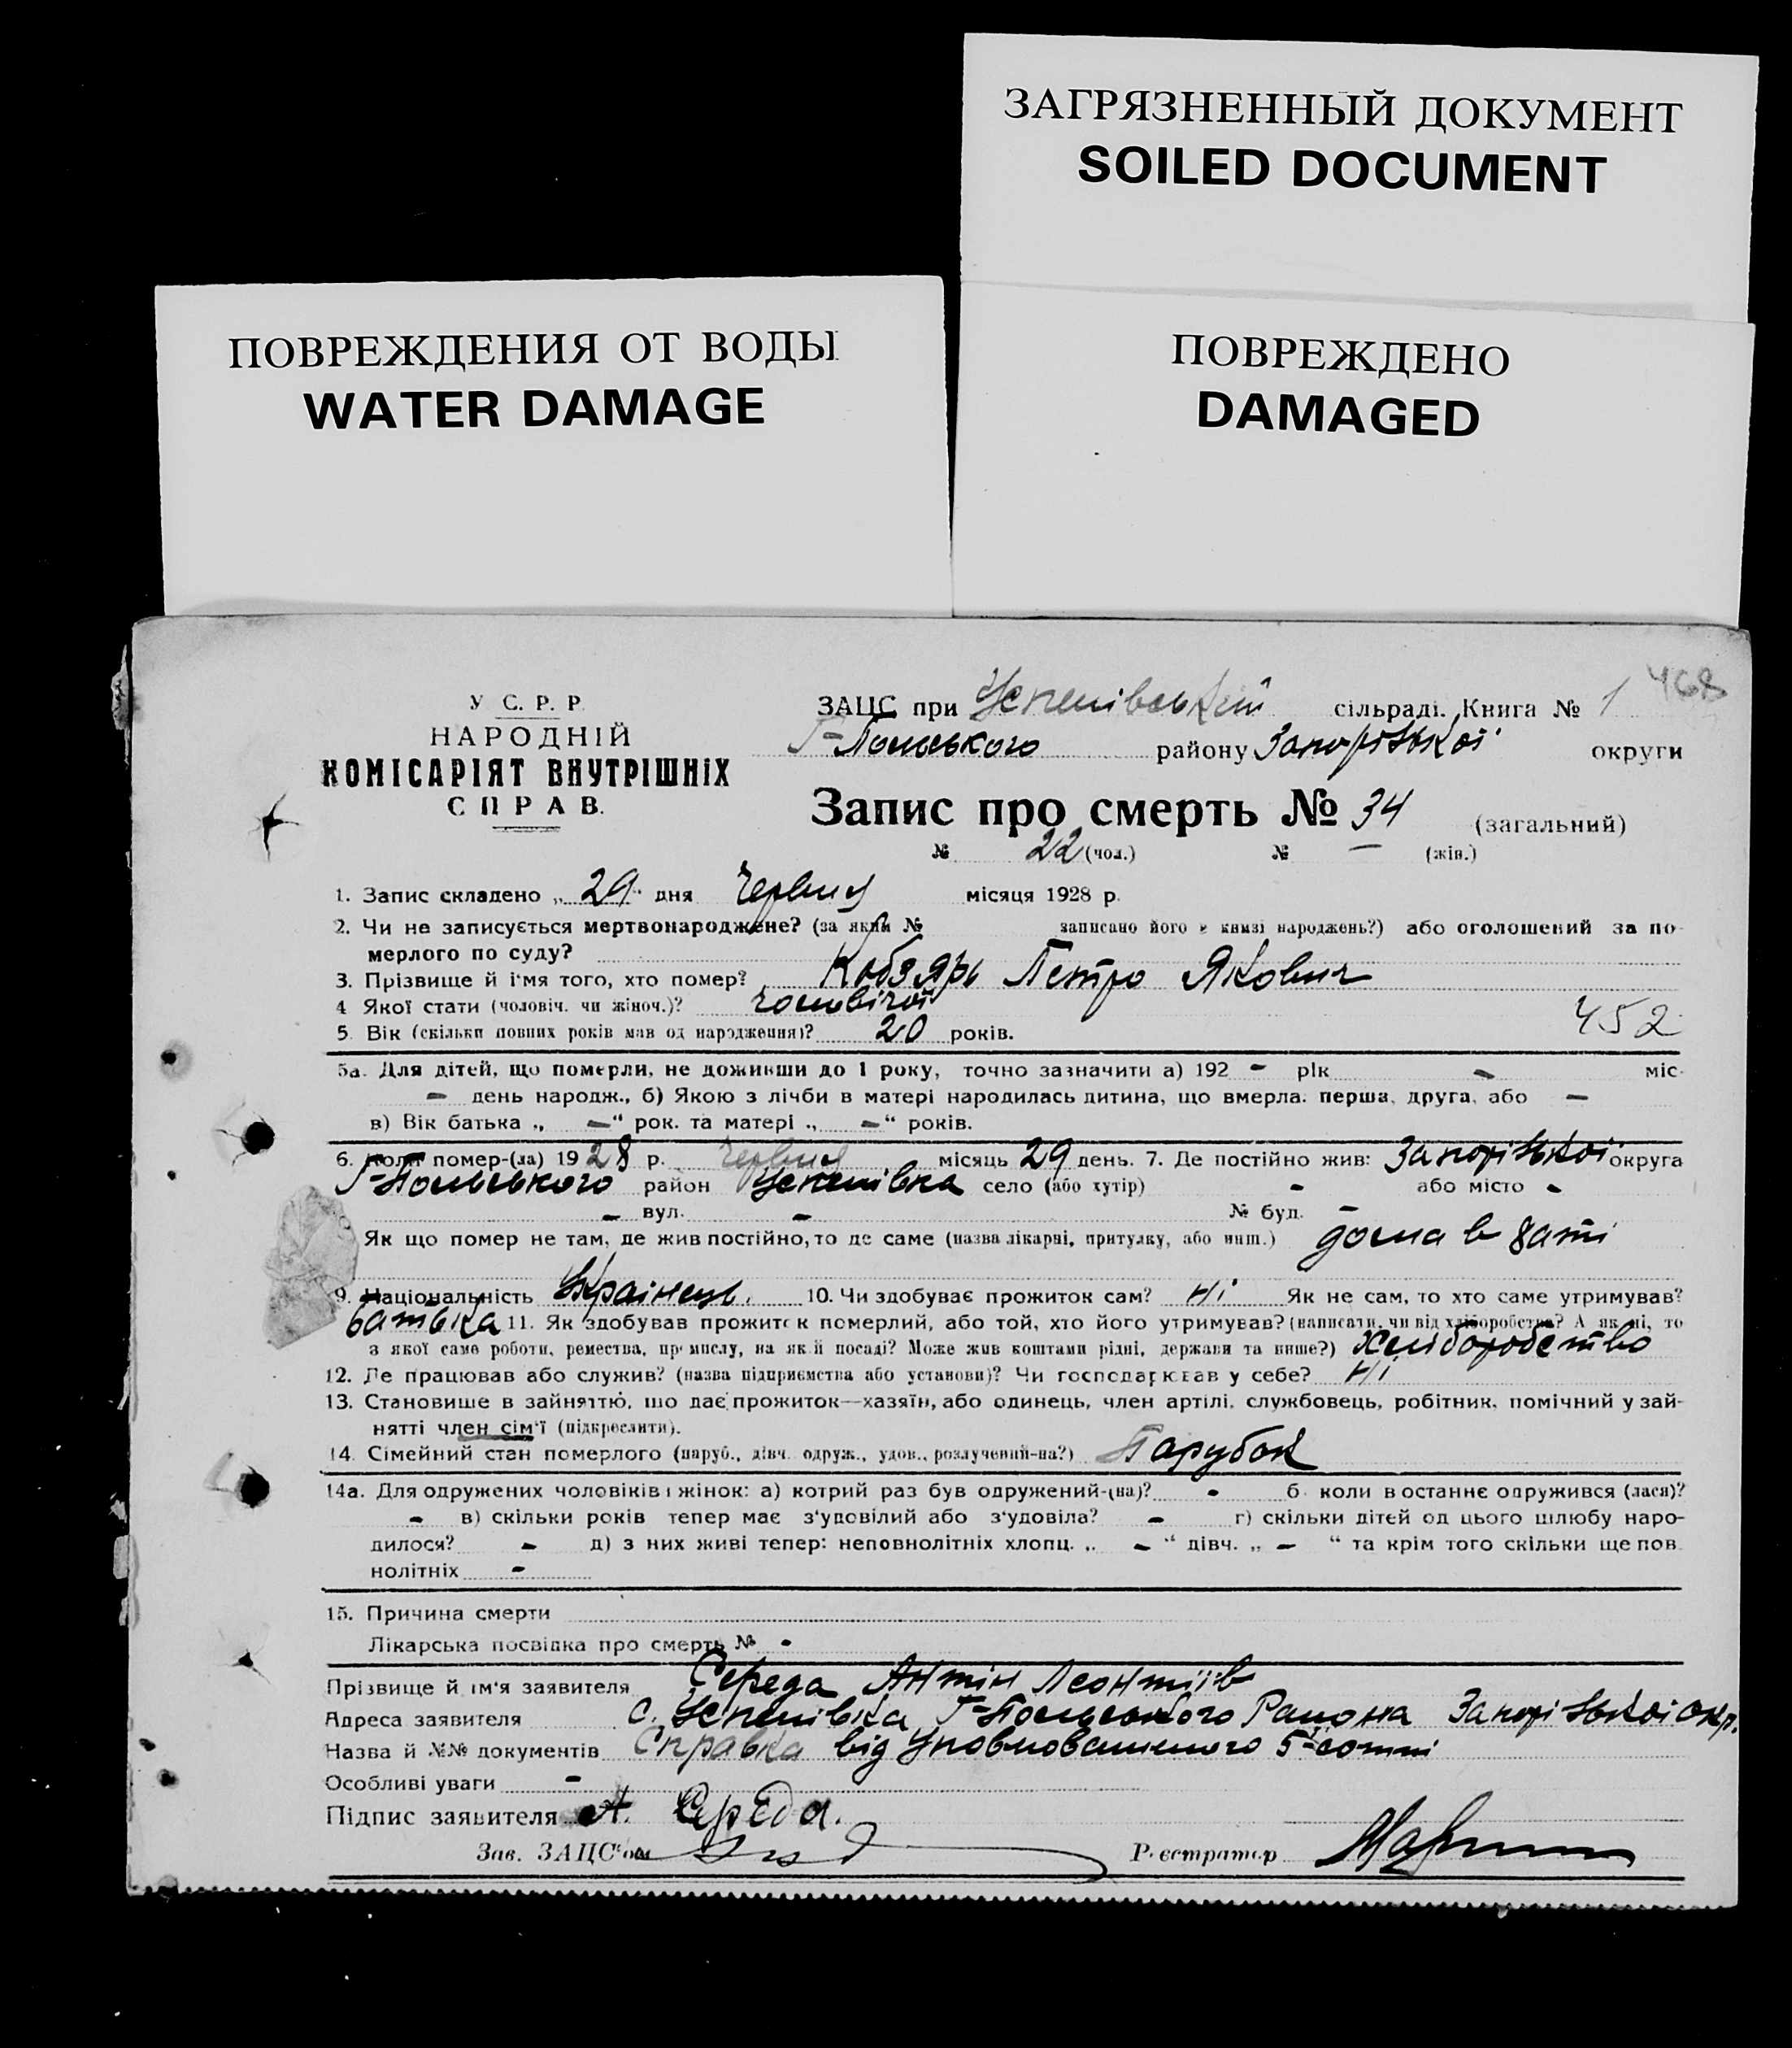 ЗАГРЯЗНЕННЫЙ ДОКУМЕНТ
SOILED DOCUMENT
ПОВРЕЖДЕНИЯ ОТ ВОДЫ
WATER DAMAGE
ПОВРЕЖДЕНО
DAMAGED
468
У С. Р. Р.
НАРОДНІЙ
КОМІСАРІЯТ ВНУТРІШНІХ
СПРАВ.
ЗАЦС при Успенівській сільраді. Книга № 1
Г-Польського району Запорізької округи
Запис про смерть № 34 (загальний)
№ 22 (чол.) № — (жін.)
1. Запис складено „ 29 " дня Червня місяця 1928 р.
2. Чи не записується мертвонароджене? (за яким № записано його в книзі народжень?) або оголошений за по-
мерлого по суду?
3. Прізвище й ім'я того, хто помер? Кобзярь Петро Якович
4 Якої стати (чоловіч. чи жіноч.)? чоловічої
452
5. Вік (скільки повних років мав од народження)? 20 років.
5а. Для дітей, що померли, не доживши до 1 року, точно зазначити а) 192 - рік - міс-
- день народж., б) Якою з лічби в матері народилась дитина, що вмерла: перша, друга, або —
в) Вік батька „ —" рок. та матері „ —" років.
6. Коли помер-(ла) 1928 р. Червня місяць 29 день. 7. Де постійно жив: Запорізької округа
Г-Польського район Успенівка село (або хутір) - або місто -
- вул. - № буд. -
Як що помер не там, де жив постійно, то де саме (назва лікарні, притулку, або инш.) дома в хаті
9. Національність Українець. 10. Чи здобуває прожиток сам? Ні Як не сам, то хто саме утримував?
батька 11. Як здобував прожиток померлий, або той, хто його утримував? (написати, чи від хліборобства? А як ні, то
з якої саме роботи, ремества, промислу, на якій посаді? Може жив коштами рідні, держави та инше?) хліборобство
12. Де працював або служив? (назва підприємства або установи)? Чи господарював у себе? Ні
13. Становище в зайняттю, що дає прожиток—хазяїн, або одинець, член артілі, службовець, робітник, помічний у зай-
нятті член сім'ї (підкреслити).
14. Сімейний стан померлого (паруб., дівч. одруж., удов., розлучений-на?) Парубок
14а. Для одружених чоловіків і жінок: а) котрий раз був одружений-(на)? - б. коли в останнє одружився (лася)?
- в) скільки років тепер має з'удовілий або з'удовіла? - г) скільки дітей од цього шлюбу наро-
дилося? - д) з них живі тепер: неповнолітніх хлопц. „ —" дівч. „ — " та крім того скільки ще пов
нолітніх -
15. Причина смерти
Лікарська посвідка про смерть № -
Прізвище й ім'я заявителя Середа Антін Леонтіїв
Адреса заявителя с. Успенівка Г-Польського Района Запорізької Окр.
Назва й №№ документів Справка від Уповноваженого 5-сотні
Особливі уваги -
Підпис заявителя А. Середа.
Зав. ЗАЦС'ом Реєстратор